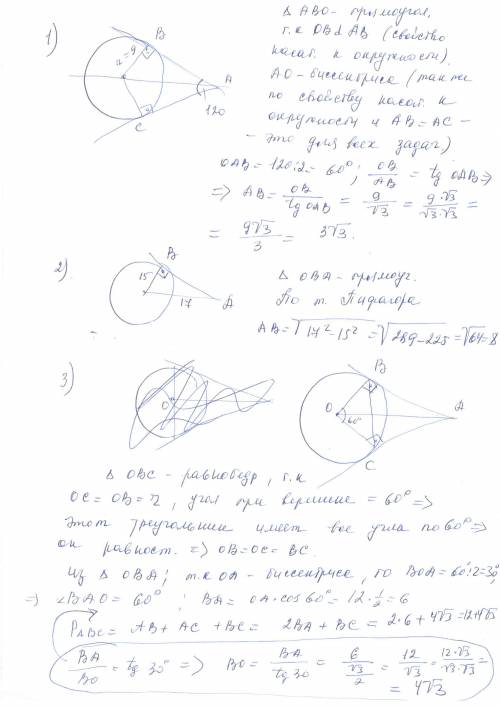 1)
r = 9
B
A
120
C
Δ ABO - прямоугол,
т.к OB⊥AB (свойство
касат. к окружности).
AO - биссектриса (также
по свойству касат. к
окружности и AB = AC -
- это для всех задач)
OAB = 120:2 = 60°; OB/AB = tg OAB ⇒
⇒ AB = OB/tg OAB = 9/√3 = 9·√3/√3·√3 =
= 9√3/3 = 3√3.
2)
B
15
17
A
Δ OBA - прямоуг.
По т. Пифагора
AB = √17² - 15² = √289 - 225 = √64 = 8
3)
O
B
O
60°
A
C
Δ OBC - равнобедр, т.к
OC = OB = r, угол при вершине = 60° ⇒
Этот треугольник имеет все углы по 60° ⇒
он равност. ⇒ OB = OC = BC.
Из Δ OBA; т.к OA - биссектриса, то BOA = 60:2 = 30°,
⇒ ∠BAO = 60°; BA = OA·cos 60° = 12·1/2 = 6
PΔBC = AB + AC + BC = 2BA + BC = 2·6 + 4√3 = 12+4√3
BA/BO = tg 30° ⇒ BO = BA/tg 30 = 6/√3/2 = 12/√3 = 12·√3/√3·√3 =
= 4√3